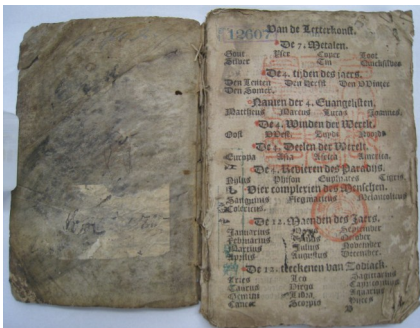 12607
Van de Letterkonst.
De 7. Metalen.
Gout Yser Coper Loot
Silver Tin Quicksilver
De 4. tijden des jaers.
Den Lenten Den Herfst Den Winter
Den Somer.
Namen der 4. Euangelisten,
Mattheus Marcus Lucas Joannes.
De 4. Winden der Werelt.
Oost West Zuydt Noordt
De 4. Deelen der Werelt.
Europa Asia Africa America.
De 4. Revieren des Paradijs.
Nylus Phison Euphrates Tigris.
Vier complexien des Menschen.
Sanguinus Flegmaticus Melancolicus
Colericus.
De 12. Maenden des Jaers.
Januarius September
Februarius October
Martius Julius November
Aprilis Augustus December.
De 12. teeckenen van Zodiack.
Aries Leo Sagittarius
Taurus Virgo Capricornus
Gemini Libra Aquarius
Cancer Scorpio